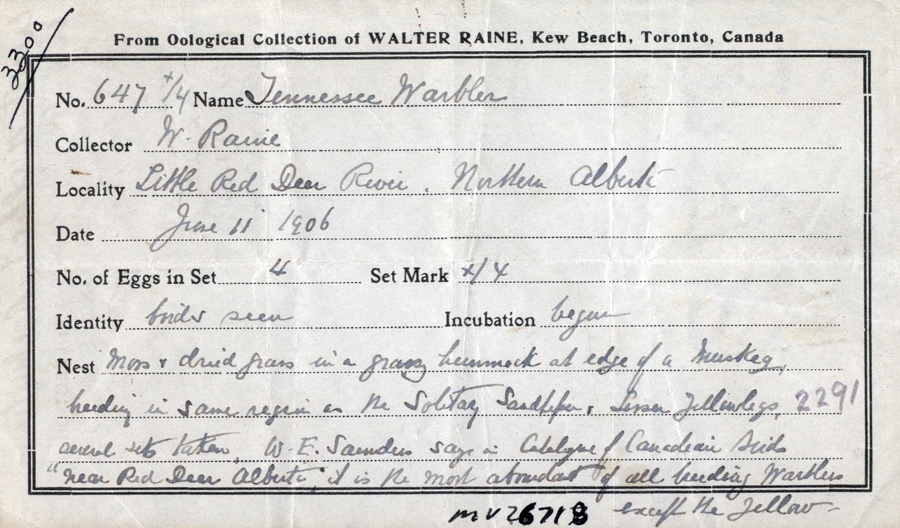 3300
From Oological Collection of WALTER RAINE, Kew Beach, Toronto, Canada
No. 647 +/4 Name Tennessee Warbler
Collector W. Raine
Locality Little Red Deer River. Northern Alberta
Date June 11 1906
No. of Eggs in Set 4 Set Mark +/4
Identity birds seen Incubation begun
Nest Moss & dried grass in a grassy hummock at edge of a Muskeg,
breeding in same region as the Solitary Sandpiper & Lesser Yellowlegs, 2291
several sets taken. W. E. Saunders says in Catalogue of Canadian Birds
"near Red Deer Alberta, it is the most abundant of all breeding Warblers
except the Yellow-
MVZ6718